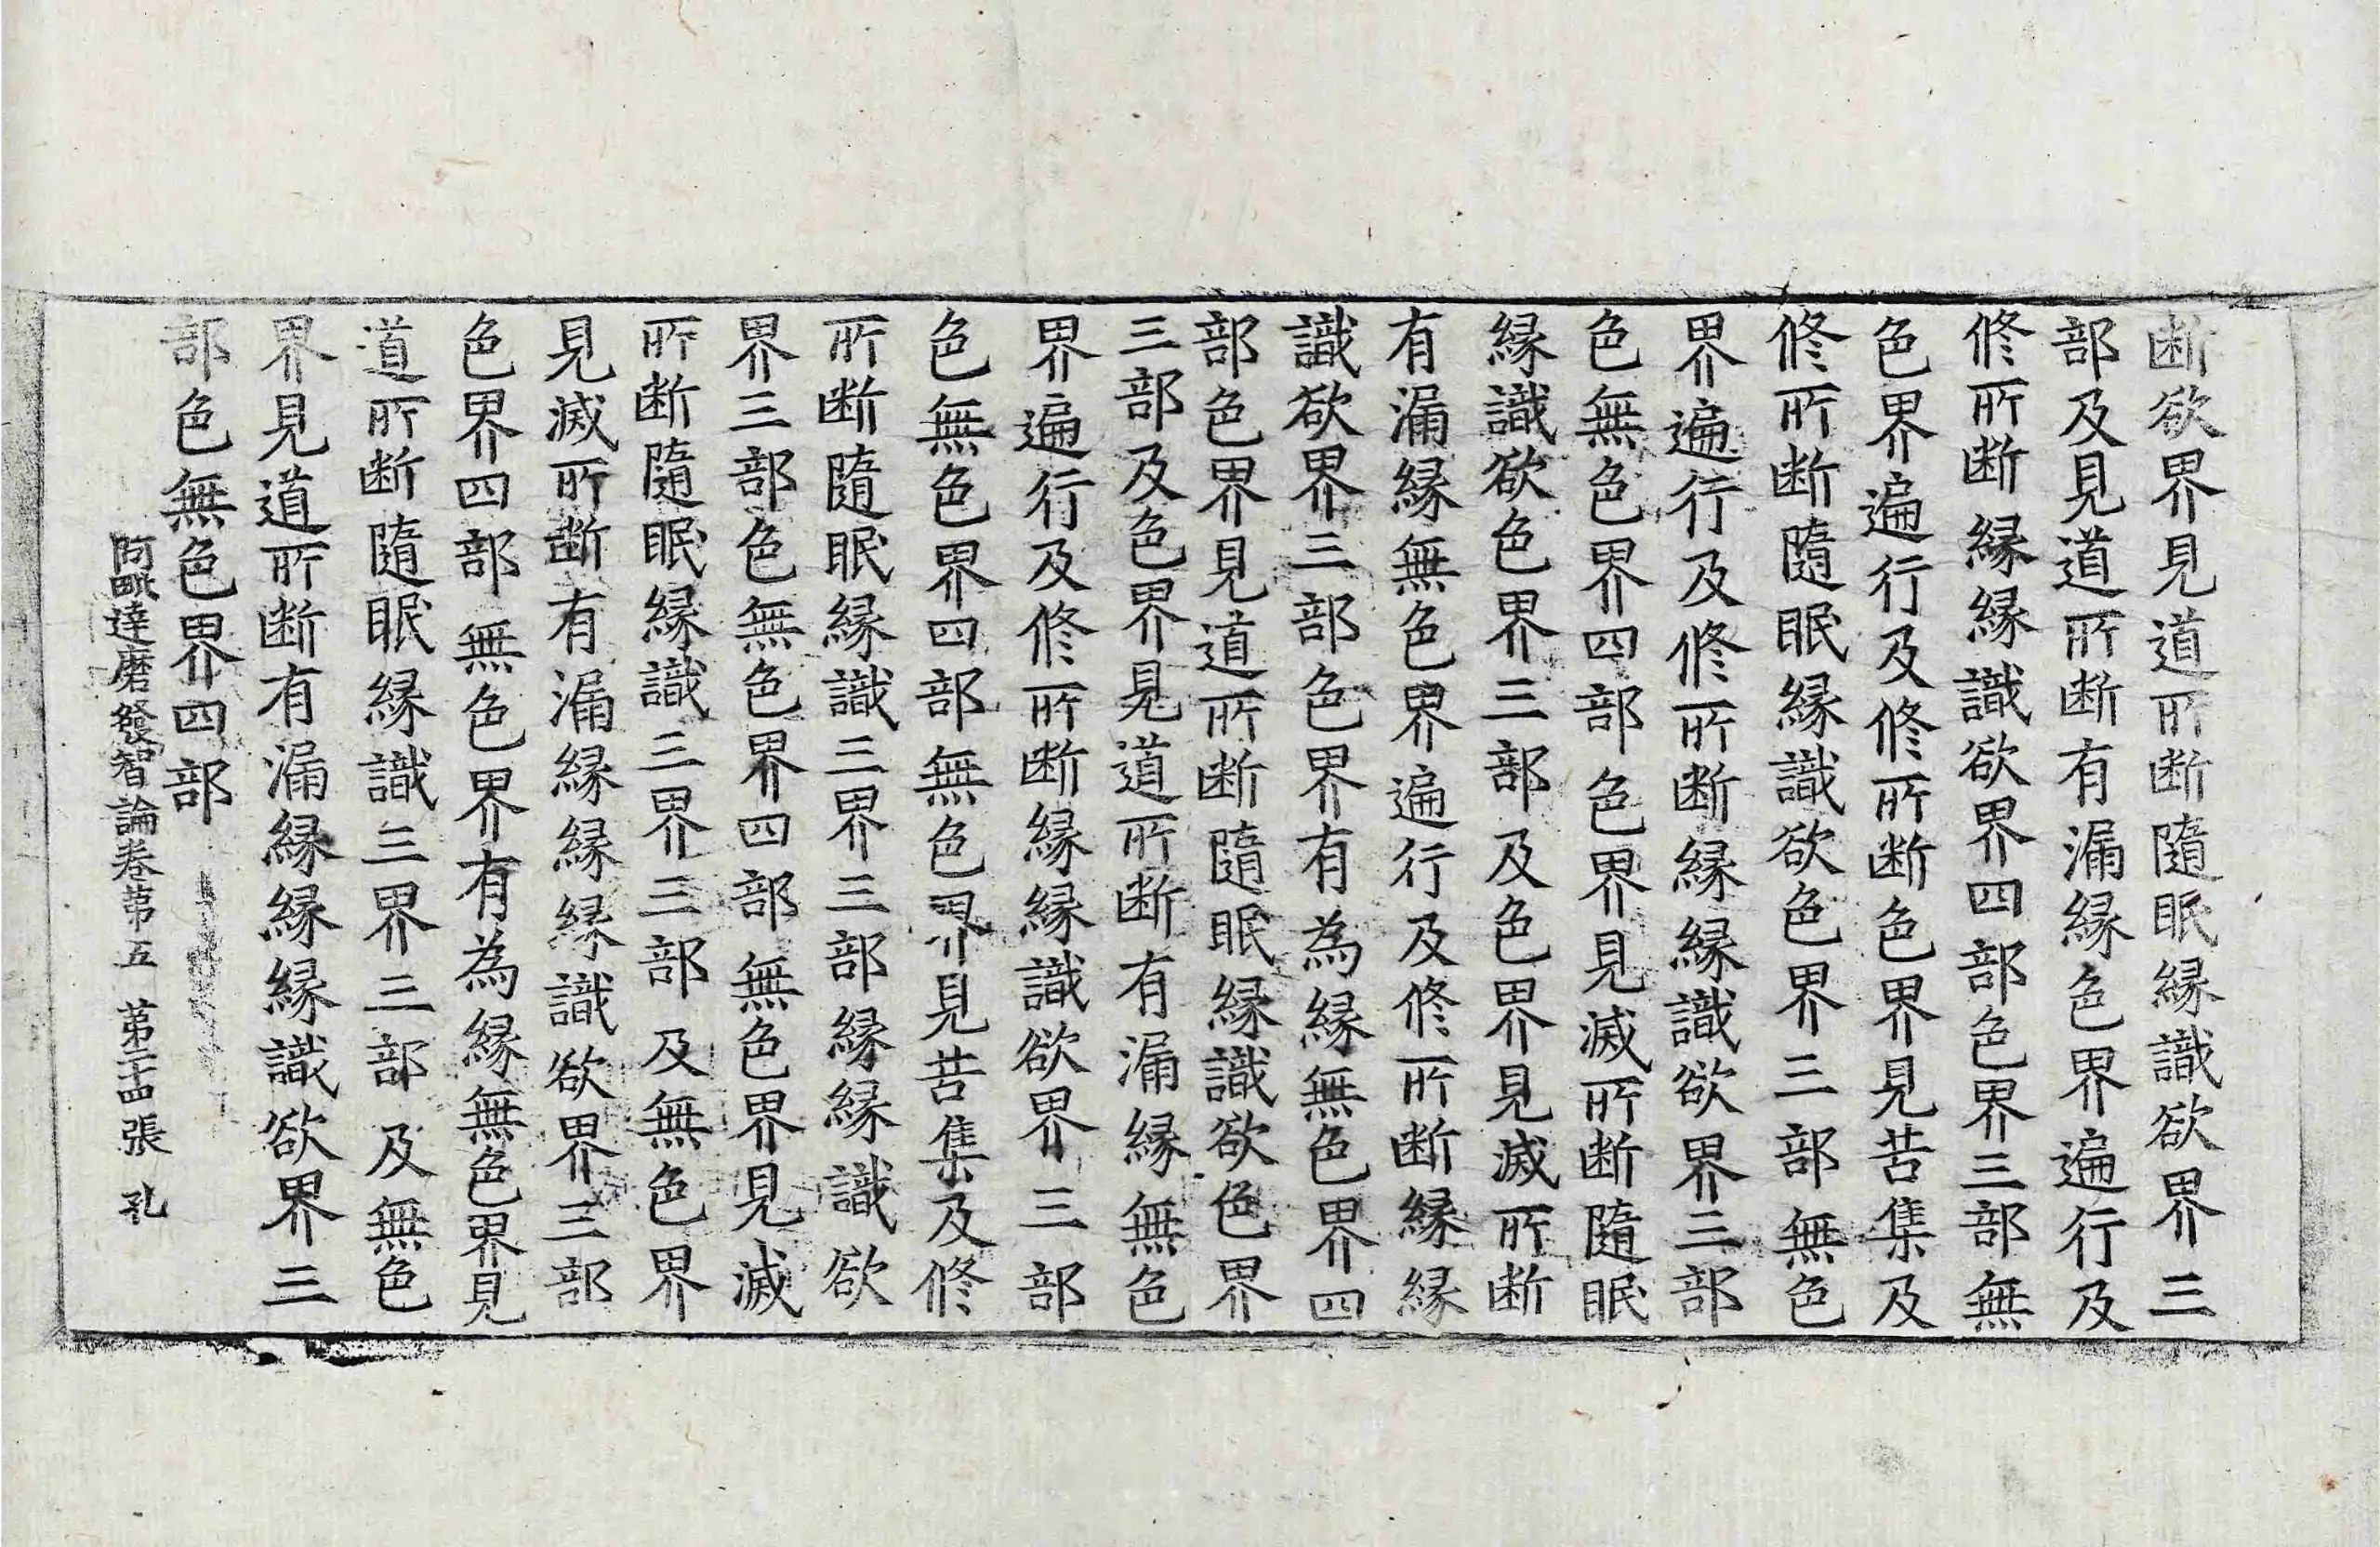 断欲界見道所断隨眠縁識欲界三
部及見道所断有漏縁色界遍行及
修所断縁縁識欲界四部色界三部無
色界遍行及修所断色界見苦集及
修所断隨眠縁識欲色界三部無色
界遍行及修所断縁縁識欲界三部
色無色界四部色界見滅所断隨眠
縁識欲色界三部及色界見滅所断
有漏縁無色界遍行及修所断縁縁
識欲界三部色界有為縁無色界四
部色界見道所断隨眠縁識欲色界
三部及色界見道所断有漏縁無色
界遍行及修所断縁縁識欲界三部
色無色界四部無色界見苦集及修
所断隨眠縁識三界三部縁縁識欲
界三部色無色界四部無色界見滅
所断隨眠縁識三界三部及無色界
見滅所断有漏縁縁縁識欲界三部
色界四部無色界有為縁無色界見
道所断隨眠縁識三界三部及無色
界見道所断有漏縁縁縁識欲界三
部色無色界四部
阿毗達磨發智論卷苐五　苐二十四張　孔